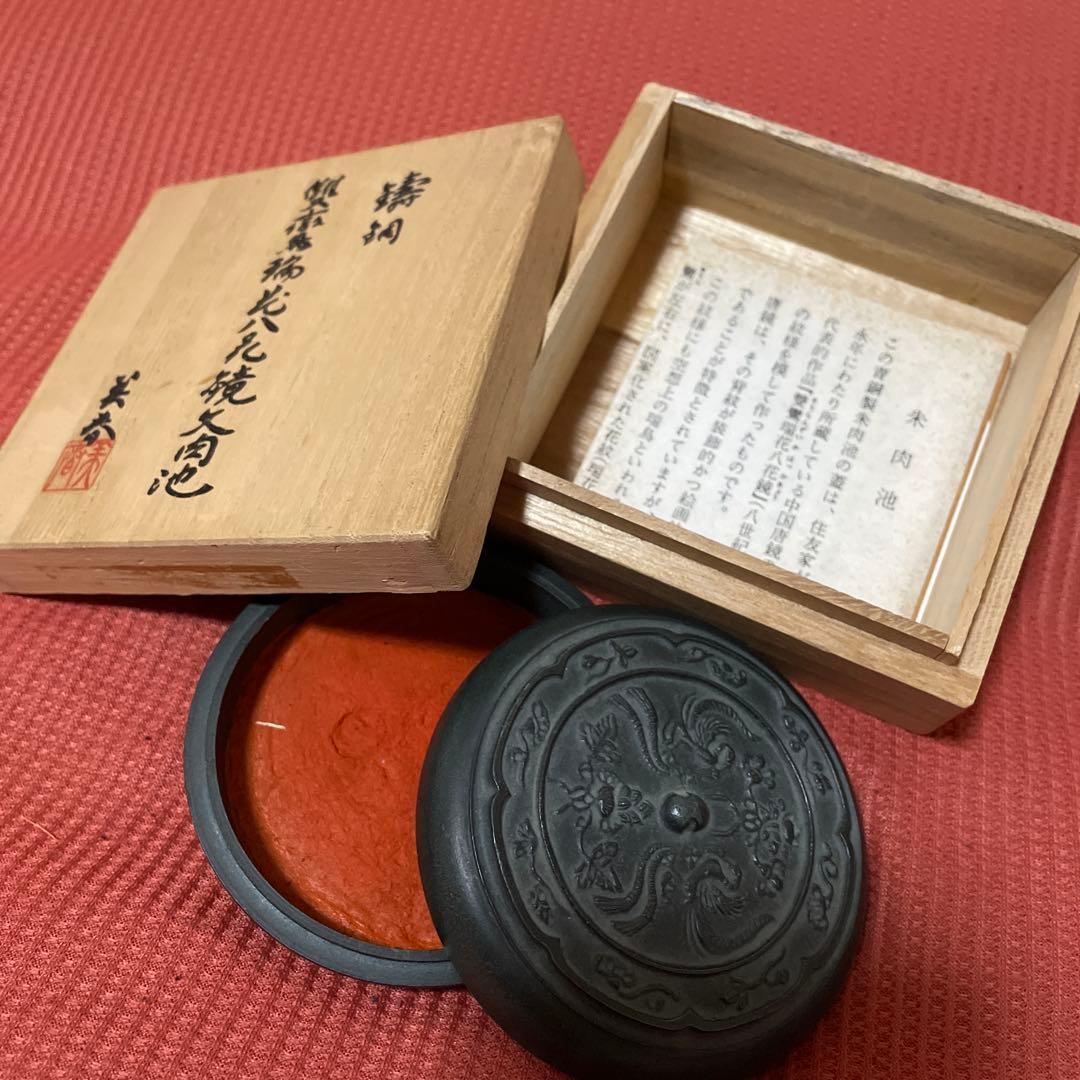 鋳銅
双鸞瑞花八花鏡文肉池
美春
朱肉池
この青銅製朱肉池の蓋は、住友家が
永年にわたり所蔵している中国唐鏡の
代表的作品「双鸞瑞花八花鏡」（八世紀
の紋様を模して作ったものです。
唐鏡は、その背紋が装飾的かつ絵画
であることが特徴とされていますが、
この紋様にも空想上の瑞鳥といわれ
鸞が左右に、図案化された花紋（瑞花